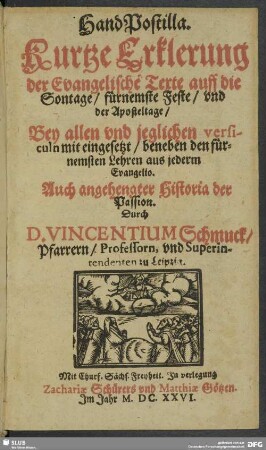 HandPostilla.
Kurtze Erklerung
der Evangelischē Texte auff die
Sontage/ fürnemste Feste/ vnd
der Aposteltage/
Bey allen vnd jeglichen versi-
culn mit eingesetzt/ beneben den für-
nemsten Lehren aus jederm
Evangelio.
Auch angehengter Historia der
Passion.
Durch
D. VINCENTIUM Schmuck/
Pfarrern/ Professorn, vnd Superin-
tendenten zu Leipzig.
Mit Churf. Sächs. Freyheit. In verlegung
Zachariæ Schürers vnd Matthiæ Götzen.
Im Jahr M. DC. XXVI.
SLUB
DFG